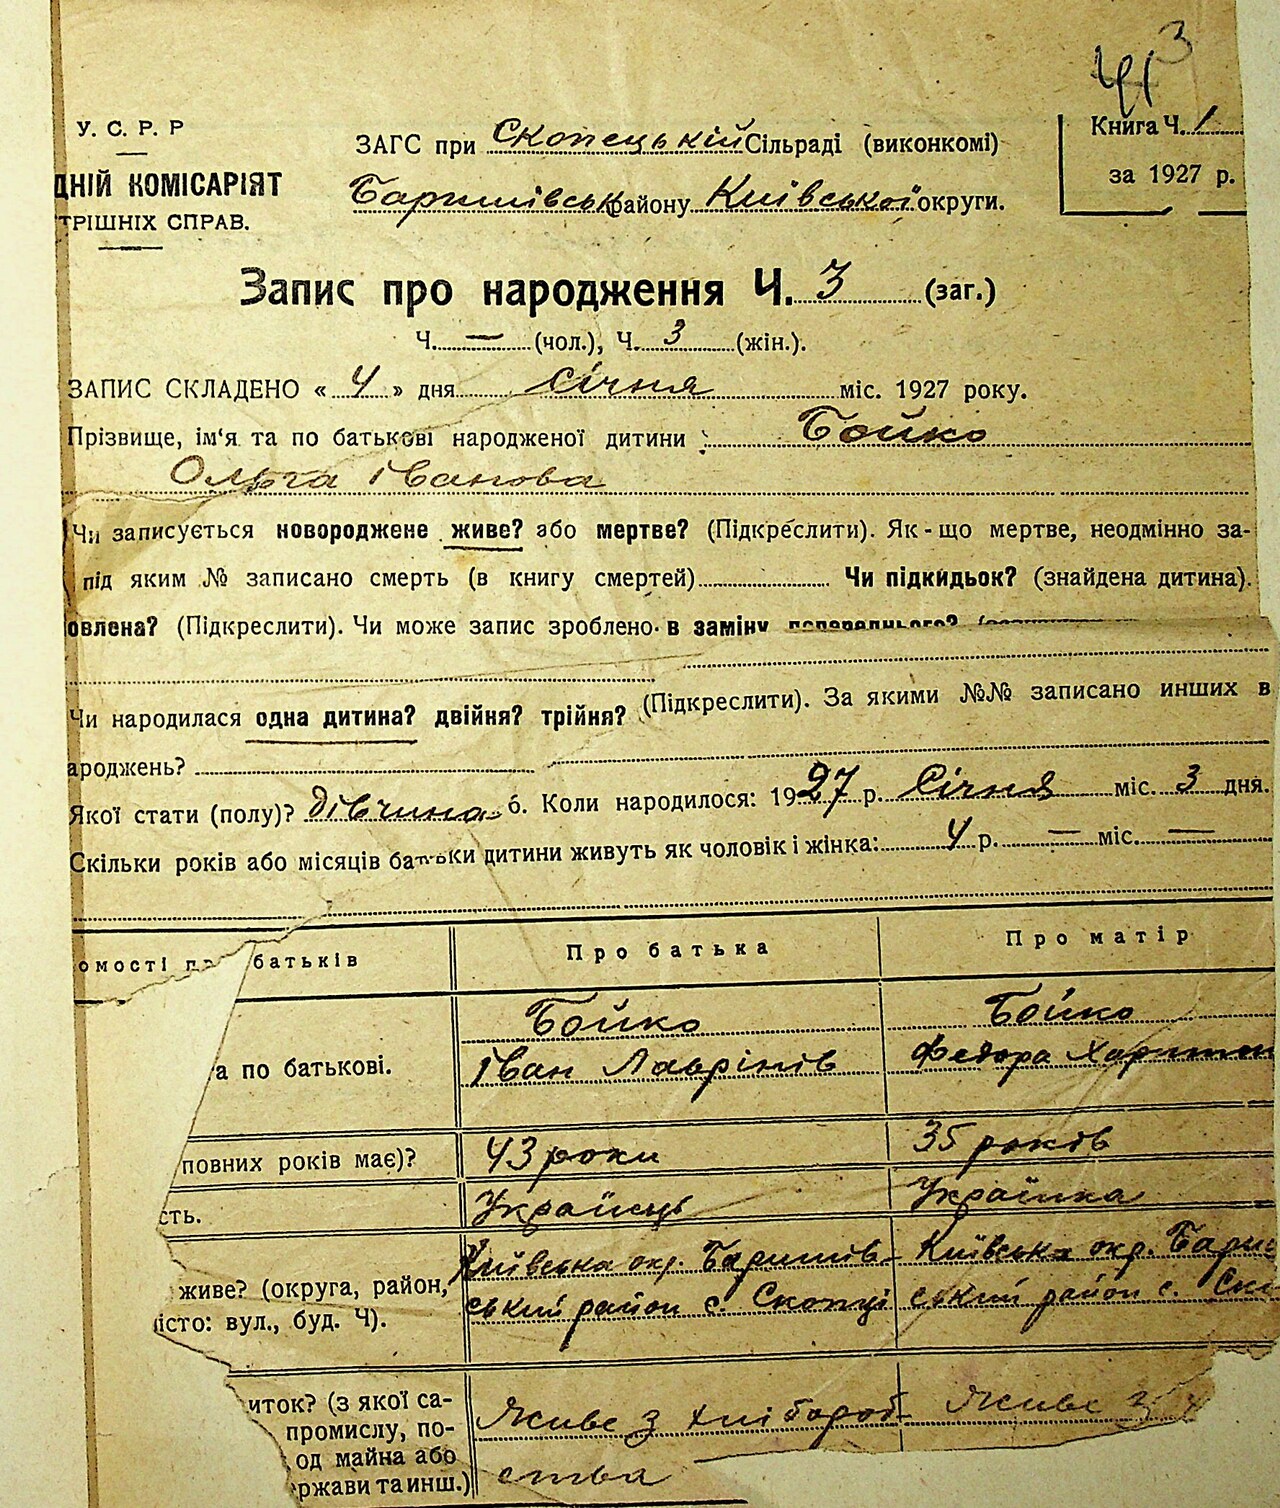 У. С. Р. Р
ДНІЙ КОМІСАРІЯТ
ТРІШНІХ СПРАВ.
3
Книга Ч. 1
за 1927 р.
ЗАГС при Скопецькій Сільраді (виконкомі)
Баришівськ району Київської округи.
Запис про народження Ч. 3 (заг.)
Ч. — (чол.), Ч. 3 (жін.).
ЗАПИС СКЛАДЕНО « 4 » дня Січня міс. 1927 року.
Прізвище, ім'я та по батькові народженої дитини : Бойко
Ольга Іванова
Чи записується новороджене живе? або мертве? (Підкреслити). Як-що мертве, неодмінно за-
під яким № записано смерть (в книгу смертей) Чи підкидьок? (знайдена дитина).
овлена? (Підкреслити). Чи може запис зроблено в заміну попереднього?
Чи народилася одна дитина? двійня? трійня? (Підкреслити). За якими №№ записано инших в
ароджень?
Якої стати (полу)? дівчина б. Коли народилося: 1927 р. Січня міс. 3 дня.
Скільки років або місяців батьки дитини живуть як чоловік і жінка: 4 р. — міс. —
омості п батьків
Про батька
Про матір
та по батькові.
Бойко
Іван Лаврінів
Бойко
Федора Харитон
повних років має)?
43 роки
35 років
сть.
Українці
Українка
живе? (округа, район,
істо: вул., буд. Ч).
Київська окр. Баришів-
ський район с. Скопці
Київська окр. Бариш
ський район с. Ско
иток? (з якої са-
промислу, по-
од майна або
ржави та инш.)
Живе з хлібороб-
ства
Живе з